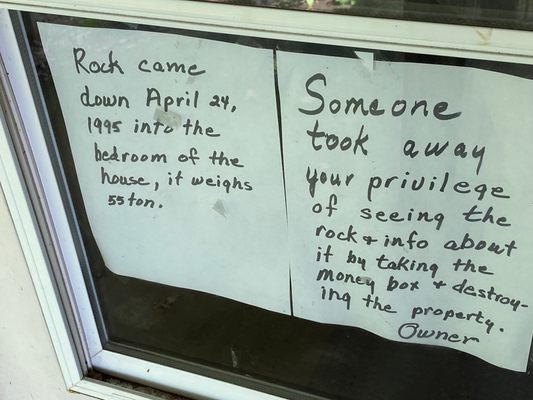 Rock came
down April 24,
1995 into the
bedroom of the
house, it weighs
55 ton.
Someone
took away
your privilege
of seeing the
rock + info about
it by taking the
money box + destroy-
ing the property.
Owner